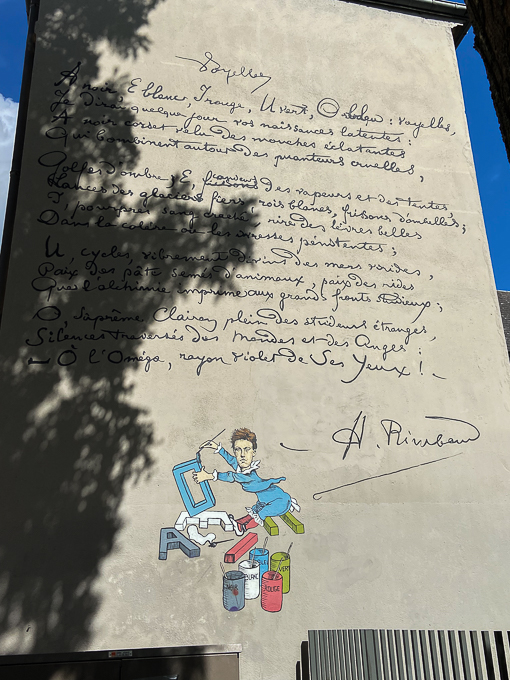 Voyelles
A noir, E blanc, I rouge, U vert, O bleu : voyelles,
Je dirai quelque jour vos naissances latentes :
A noir corset velu des mouches éclatantes
Qui bombinent autour des puanteurs cruelles,
Golfes d'ombre ; E, frissons candeurs des vapeurs et des tentes,
Lances des glaciers fiers, rois blancs, frissons d'ombelles ;
I, pourpres, sang craché, rire des lèvres belles
Dans la colère ou les ivresses pénitentes ;
U, cycles, vibrements divins des mers virides,
Paix des pâtis semés d'animaux, paix des rides
Que l'alchimie imprime aux grands fronts studieux ;
O, Suprême Clairon plein des strideurs étranges,
Silences traversés des Mondes et des Anges :
— Ô l'Oméga, rayon violet de Ses Yeux ! —
A. Rimbaud
O
E
A
U
I
BLEU
VERT
NOIR
BLANC
ROUGE